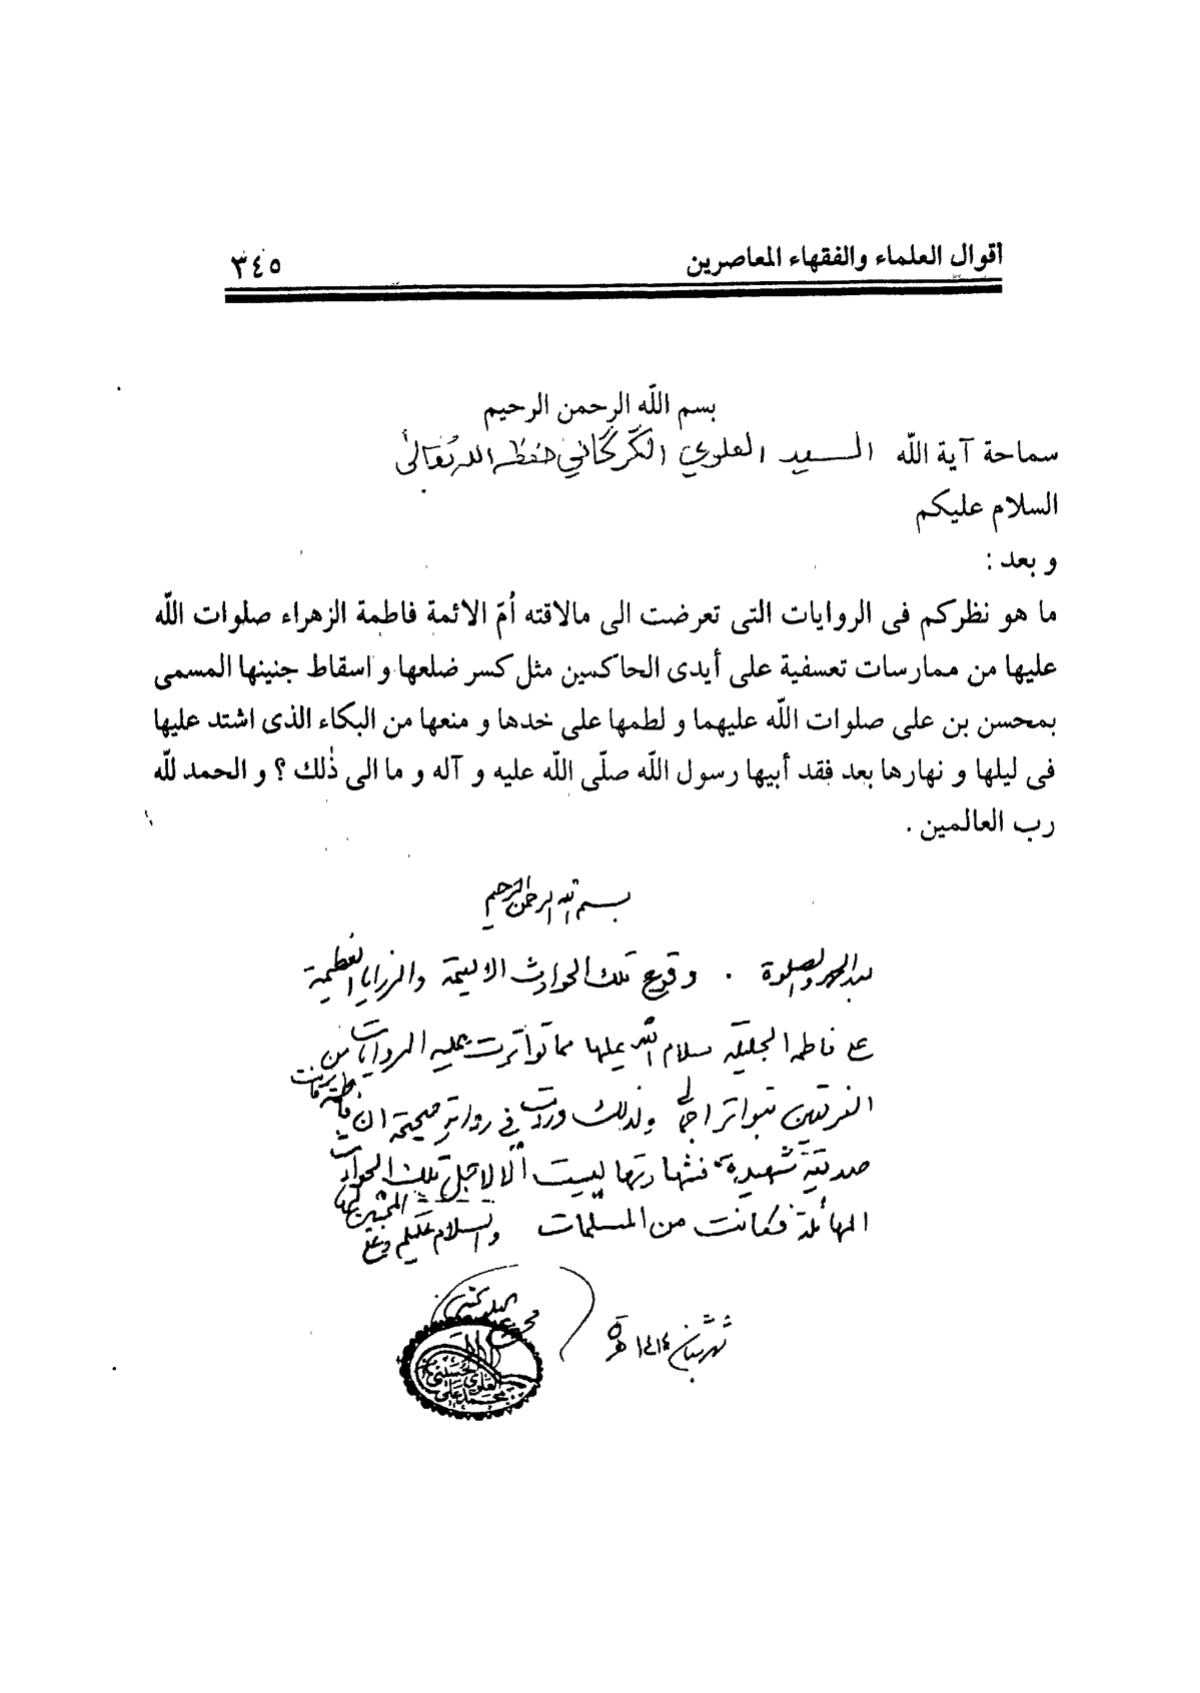 أقوال العلماء والفقهاء المعاصرين ٣٤٥
بسم اللّه الرحمن الرحيم
سماحة آية اللّه السيد العلوي الگرگاني حفظه الله تعالى
السلام عليكم
و بعد :
ما هو نظركم فى الروايات التى تعرضت الى مالاقته أُمّ الائمة فاطمة الزهراء صلوات اللّه
عليها من ممارسات تعسفية على أيدى الحاكمين مثل كسر ضلعها و اسقاط جنينها المسمى
بمحسن بن على صلوات اللّه عليهما و لطمها على خدها و منعها من البكاء الذى اشتد عليها
فى ليلها و نهارها بعد فقد أبيها رسول اللّه صلّى اللّه عليه و آله و ما الى ذٰلك ؟ و الحمد للّه
رب العالمين .
بسم الله الرحمن الرحيم
بعد الحمد والصلوة . وقوع تلك الحوادث الاليمة والرزايا العظيمة
على فاطمه الجليلة سلام الله عليها مما تواترت عليه الروايات من
الفريقين بتواتر اجمالي ولذلك وردت في رواية صحيحة ان فاطمة كانت
صديقة شهيدة فشهادتها ليست الّا لاجل تلك الحوادث
الهائلة فكانت من المسلمات والسلام عليكم وعلى
١٤١٤
العلوي الحسيني
محمد علي